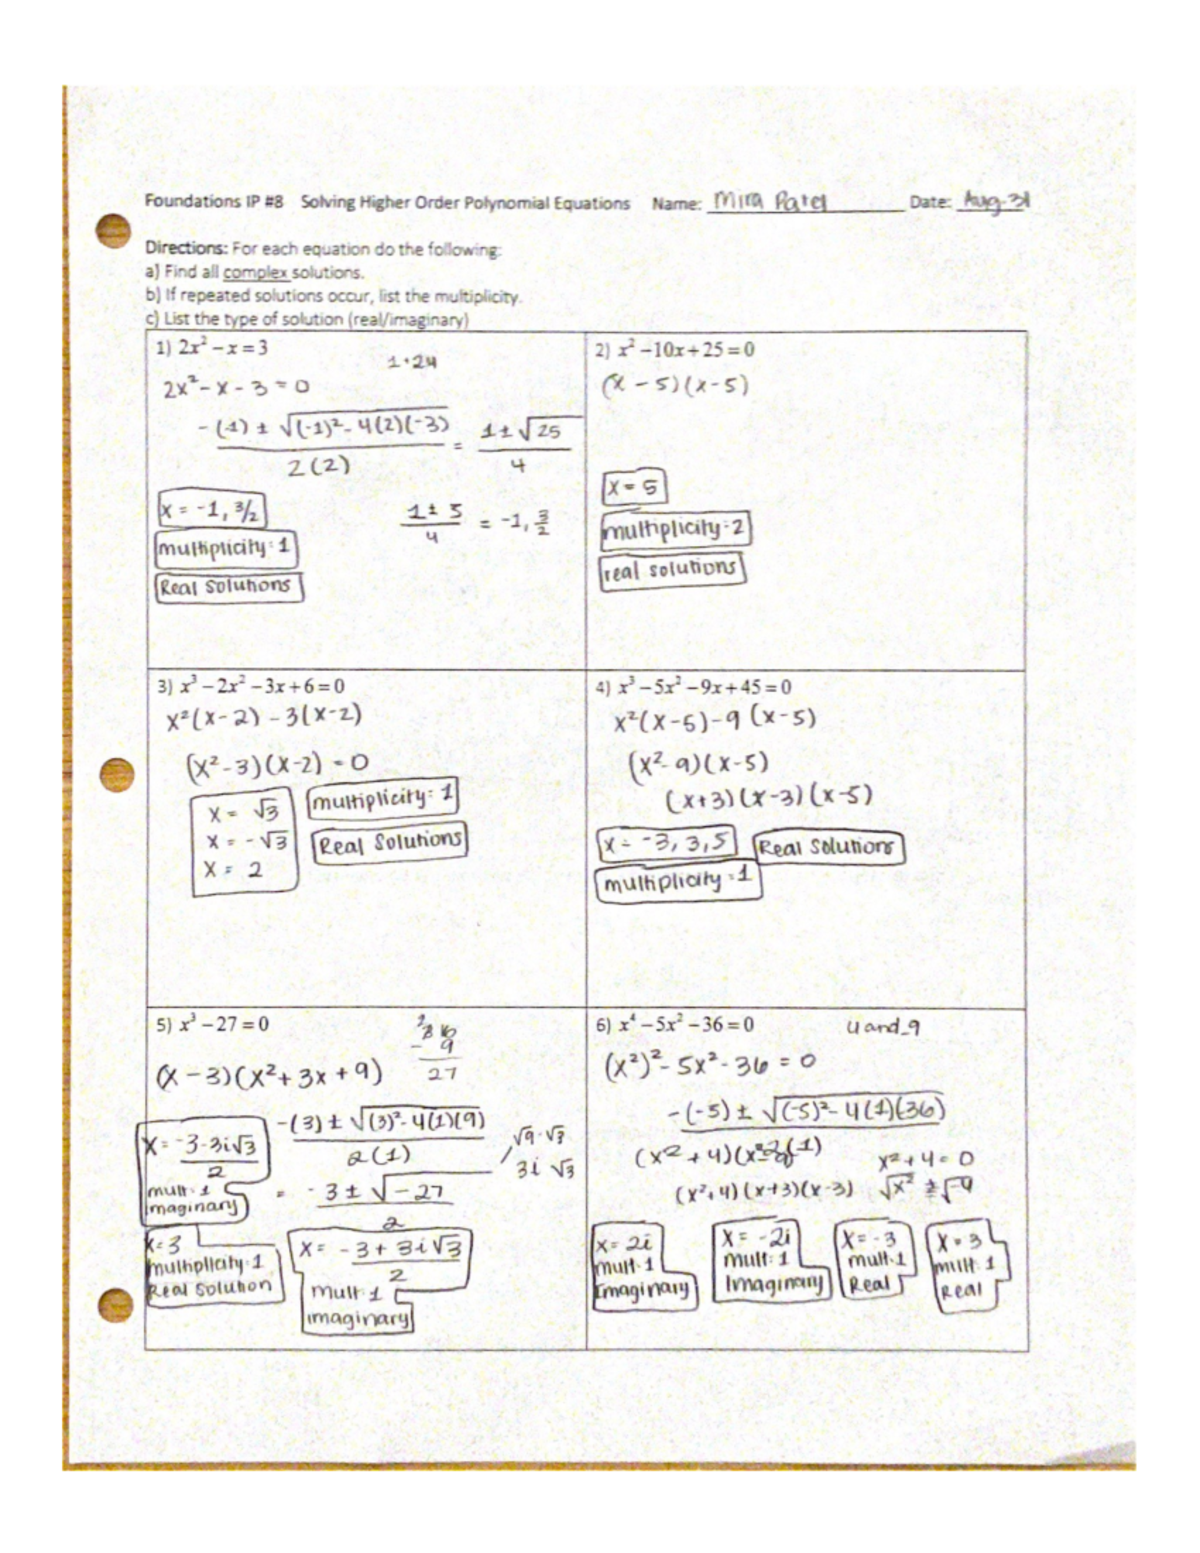 Foundations IP #8 Solving Higher Order Polynomial Equations Name: Mira Patel Date: Aug. 31
Directions: For each equation do the following:
a) Find all complex solutions.
b) If repeated solutions occur, list the multiplicity.
c) List the type of solution (real/imaginary)
1) 2x² – x = 3
1+24
2x² - x - 3 = 0
-(-1) ± √(-1)² - 4(2)(-3) / 2(2) = 1 ± √25 / 4
1 ± 5 / 4 = -1, 3/2
x = -1, 3/2
multiplicity: 1
Real Solutions
2) x² – 10x + 25 = 0
(x - 5)(x - 5)
x = 5
multiplicity: 2
real solutions
3) x³ – 2x² – 3x + 6 = 0
x²(x - 2) - 3(x - 2)
(x² - 3)(x - 2) = 0
x = √3
x = -√3
x = 2
multiplicity: 1
Real Solutions
4) x³ – 5x² – 9x + 45 = 0
x²(x - 5) - 9(x - 5)
(x² - 9)(x - 5)
(x+3)(x-3)(x-5)
x = -3, 3, 5
Real Solutions
multiplicity = 1
5) x³ – 27 = 0
- 9
27
(x - 3)(x² + 3x + 9)
-(3) ± √(3)² - 4(1)(9) / 2(1)
√9 · √3
3i √3
= -3 ± √-27 / 2
x = -3-3i√3 / 2
mult: 1
imaginary
x = 3
multiplicity: 1
Real Solution
x = -3 + 3i√3 / 2
mult: 1
imaginary
6) x⁴ – 5x² – 36 = 0
4 and -9
(x²)² - 5x² - 36 = 0
-(-5) ± √(-5)² - 4(1)(36)
2(1)
(x² + 4)(x² - 9)
x² + 4 = 0
(x² + 4)(x+3)(x-3)
√x² ± √-4
x = 2i
mult: 1
Imaginary
x = -2i
mult: 1
Imaginary
x = -3
mult: 1
Real
x = 3
mult: 1
Real